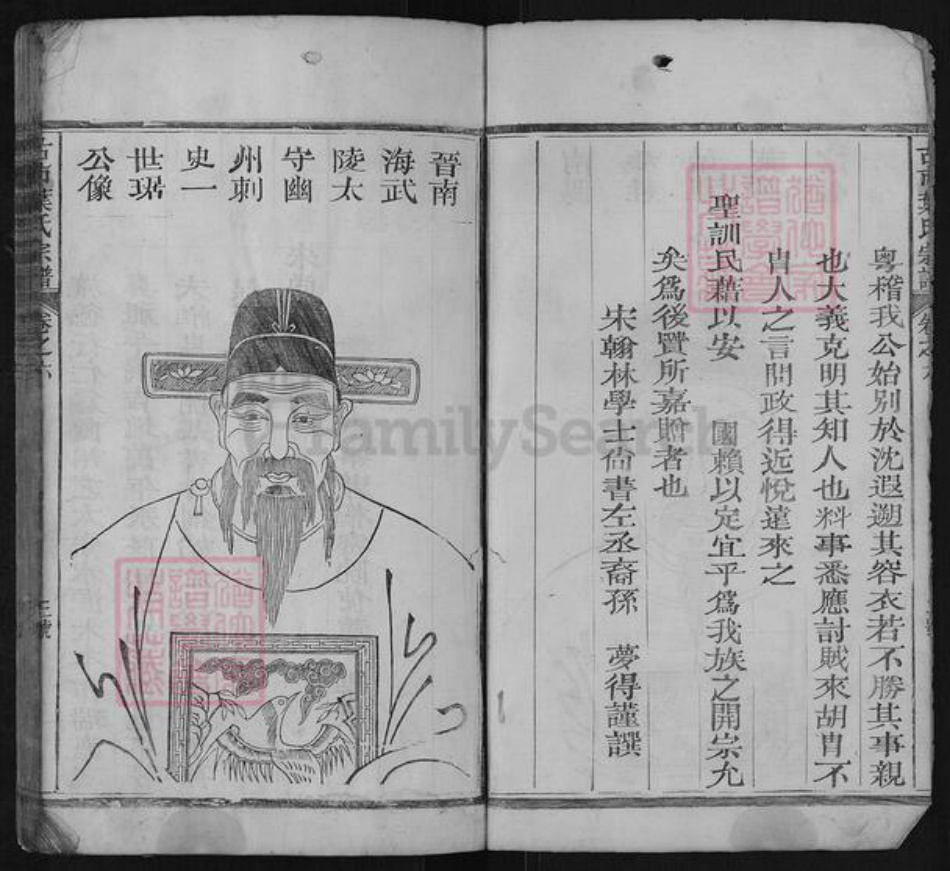 粵稽我公始別於沈遐遡其容衣若不勝其事親
也大義克明其知人也料事悉應討賊來胡胄不
胄人之言問政得近悅遠來之
聖訓民藉以安　國賴以定宜乎為我族之開宗允
矣為後賢所嘉贈者也
宋翰林學士尙書左丞裔孫　夢得謹譔
晉南
海武
陵太
守幽
州刺
史一
世琚
公像
葉氏宗譜
卷之六
FamilySearch